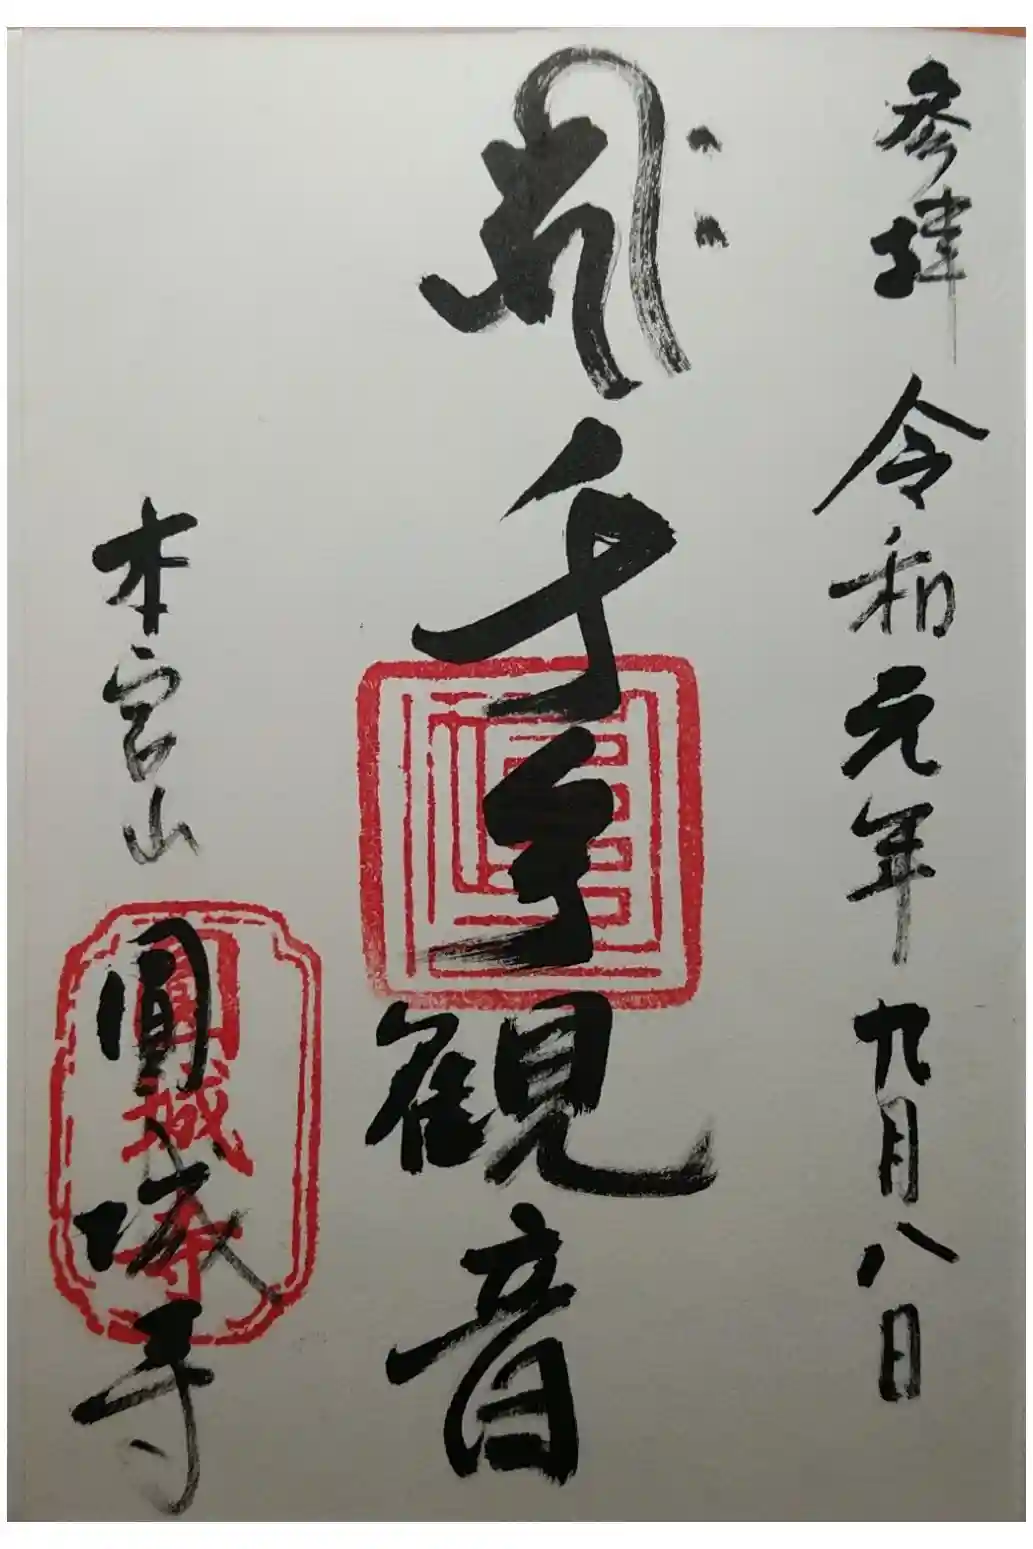 参拝 令和元年 九月八日
ह्रीः 千手観音
本宮山 圓城寺
圓城寺